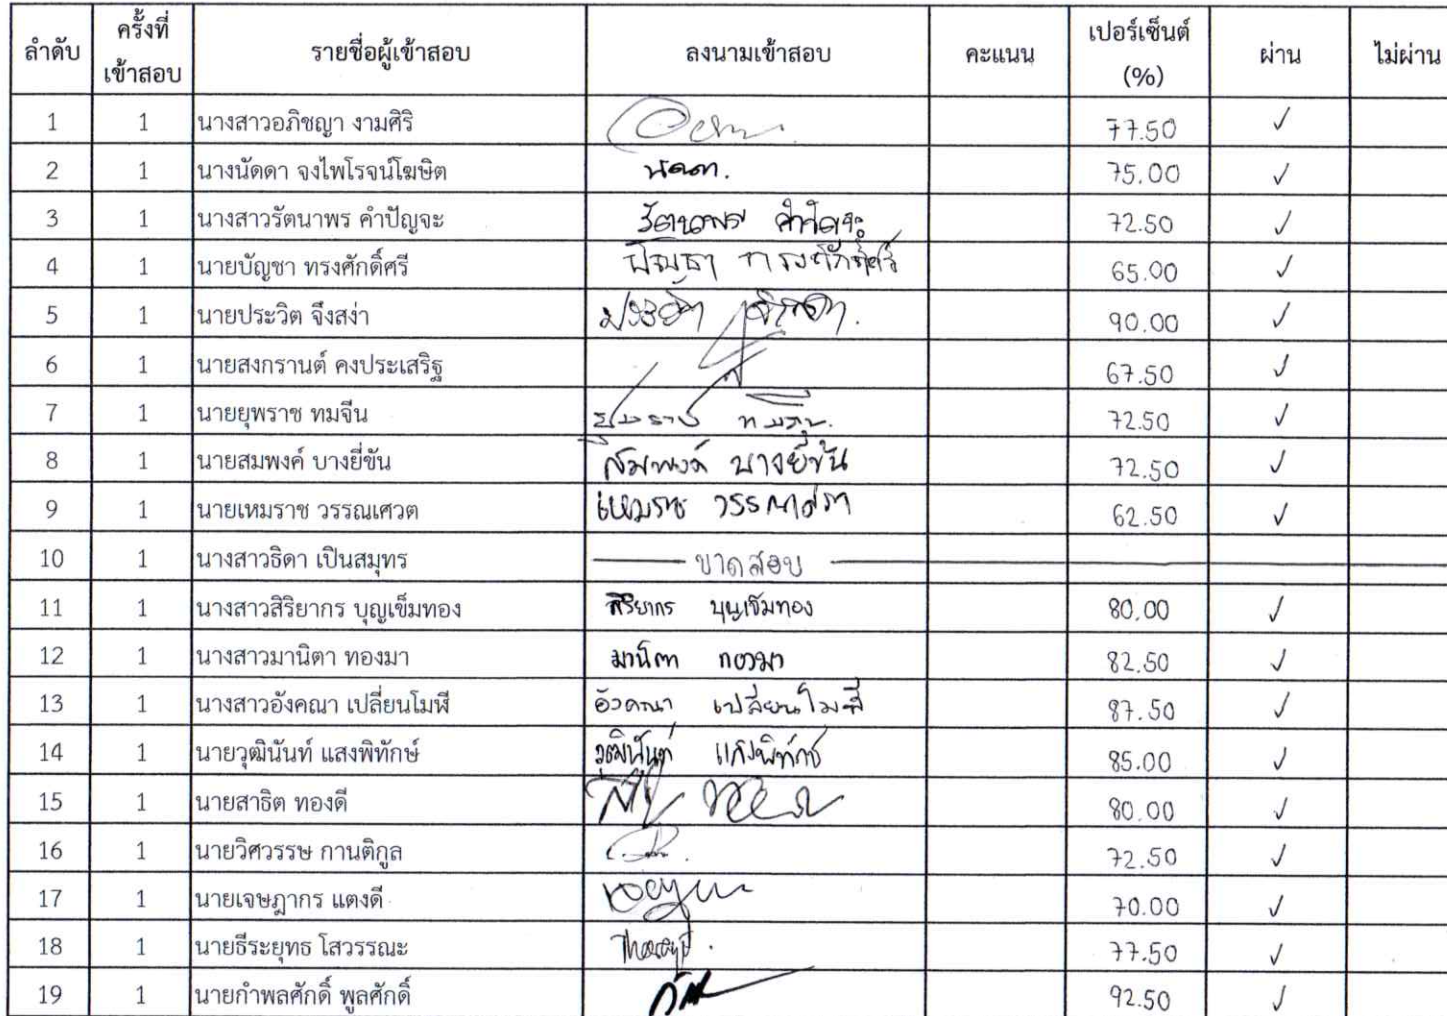 ลำดับ ครั้งที่เข้าสอบ รายชื่อผู้เข้าสอบ ลงนามเข้าสอบ คะแนน เปอร์เซ็นต์ (%) ผ่าน ไม่ผ่าน
1 1 นางสาวอภิชญา งามศิริ 77.50 ✓
2 1 นางนัดดา จงไพโรจน์โฆษิต นัดดา. 75.00 ✓
3 1 นางสาวรัตนาพร คำปัญจะ รัตนาพร คำปัญจะ 72.50 ✓
4 1 นายบัญชา ทรงศักดิ์ศรี บัญชา ทรงศักดิ์ศรี 65.00 ✓
5 1 นายประวิต จึงสง่า 90.00 ✓
6 1 นายสงกรานต์ คงประเสริฐ 67.50 ✓
7 1 นายยุพราช ทมจีน ยุพราช ทมจีน. 72.50 ✓
8 1 นายสมพงค์ บางยี่ขัน สมพงค์ บางยี่ขัน 72.50 ✓
9 1 นายเหมราช วรรณเศวต เหมราช 62.50 ✓
10 1 นางสาวธิดา เปินสมุทร ขาดสอบ
11 1 นางสาวสิริยากร บุญเข็มทอง สิริยากร บุญเข็มทอง 80.00 ✓
12 1 นางสาวมานิตา ทองมา มานิตา ทองมา 82.50 ✓
13 1 นางสาวอังคณา เปลี่ยนโมฬี อังคณา เปลี่ยนโมฬี 87.50 ✓
14 1 นายวุฒินันท์ แสงพิทักษ์ วุฒินันท์ แสงพิทักษ์ 85.00 ✓
15 1 นายสาธิต ทองดี 80.00 ✓
16 1 นายวิศวรรษ กานติกูล 72.50 ✓
17 1 นายเจษฎากร แตงดี 70.00 ✓
18 1 นายธีระยุทธ โสวรรณะ 77.50 ✓
19 1 นายกำพลศักดิ์ พูลศักดิ์ 92.50 ✓